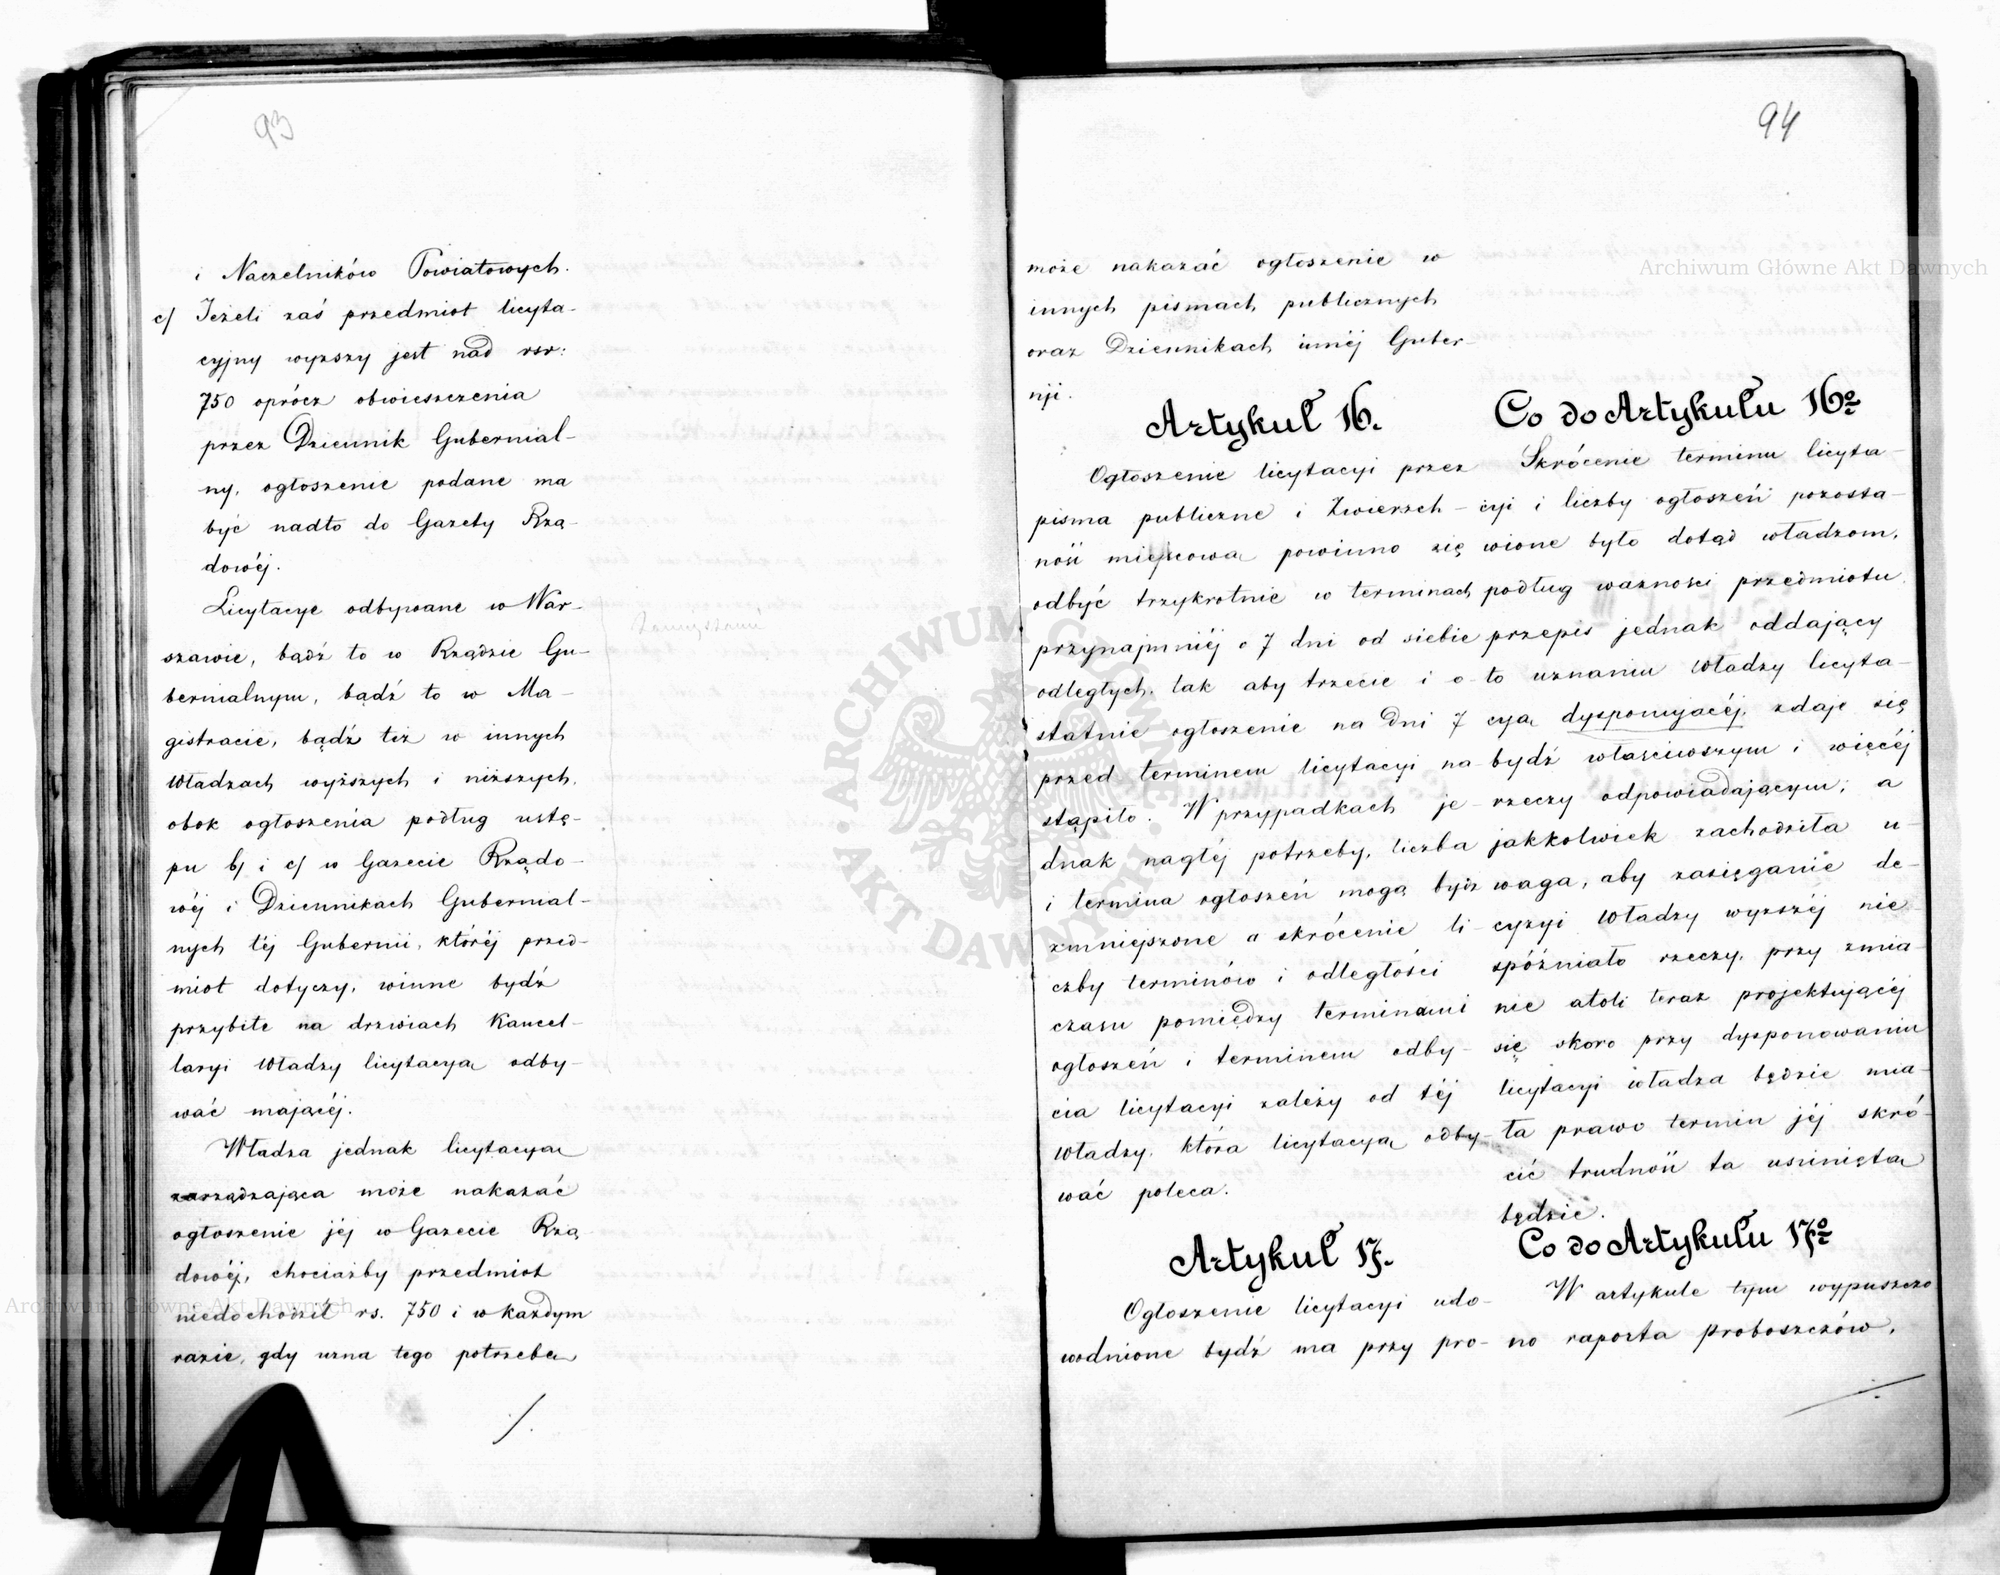 93
i Naczelników Powiatowych.
c/ Jeżeli zaś przedmiot licyta-
cyjny wyższy jest nad rsr:
750 oprócz obwieszczenia
przez Dziennik Gubernial-
ny, ogłoszenie podane ma
być nadto do Gazety Rzą-
dowéj.
Licytacye odbywane w War-
szawie, bądź to w Rządzie Gu-
bernialnym, bądź to w Ma-
gistracie, bądź też w innych
Władzach wyższych i niższych,
obok ogłoszenia podług ustę-
pu b/ i c/ w Gazecie Rządo-
wéj i Dziennikach Gubernial-
nych téj Gubernii, któréj przed-
miot dotyczy, winne bydź
przybite na drzwiach Kancel-
laryi Władzy licytacyą odby-
wać mającéj.
Władza jednak licytacyą
zarządzająca może nakazać
ogłoszenie jéj w Gazecie Rzą-
dowéj, chociażby przedmiot
niedochodził rs. 750 i w każdym
razie, gdy uzna tego potrzebę
./.
94
może nakazać ogłoszenie w
innych pismach publicznych
oraz Dziennikach innéj Guber-
nji.
Artykuł 16.
Ogłoszenie licytacyi przez
pisma publiczne i Zwierzch-
ność miejscową powinno się
odbyć trzykrotnie w terminach
przynajmniéj o 7 dni od siebie
odległych, tak aby trzecie i o-
statnie ogłoszenie na dni 7
przed terminem licytacyi na-
stąpiło. W przypadkach je-
dnak nagłéj potrzeby, liczba
i termina ogłoszeń mogą bydź
zmniejszone a skrócenie li-
czby terminów i odległości
czasu pomiędzy terminami
ogłoszeń i terminem odby-
cia licytacyi zależy od téj
Władzy, która licytacyą odby-
wać poleca.
Artykuł 17.
Ogłoszenie licytacyi udo-
wodnione bydź ma przy pro-
Co do Artykułu 16º
Skrócenie terminu licyta-
cyi i liczby ogłoszeń pozosta-
wione było dotąd władzom,
podług ważności przedmiotu,
przepis jednak oddający
to uznaniu Władzy licyta-
cyą dysponującéj, zdaje się
bydź właściwszym i więcéj
rzeczy odpowiadającym; a
jakkolwiek zachodziła u-
waga, aby zasięganie de-
cyzyi Władzy wyższéj nie
spóźniało rzeczy, przy zmia-
nie atoli teraz projektującéj
się skoro przy dysponowaniu
licytacyi władza będzie mia-
ła prawo termin jéj skró-
cić trudność ta usuniętą
będzie.
Co do Artykułu 17º
W artykule tym wypuszczo
no raporta proboszczów,
Archiwum Główne Akt Dawnych
Archiwum Główne Akt Dawnych
ARCHIWUM GŁÓWNE
AKT DAWNYCH